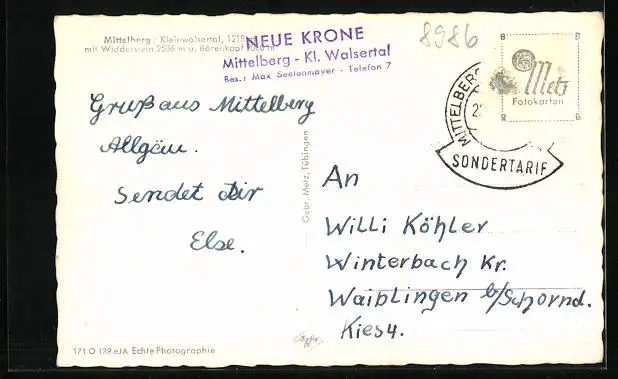 Mittelberg / Kleinwalsertal, 1215 m
mit Widderstein 2536 m u. Bärenkopf
NEUE KRONE
Mittelberg - Kl. Walsertal
Bes.: Max Seelenmayer · Telefon 7
8986
Gruß aus Mittelberg
Allgäu.
Sendet dir
Else.
Gebr. Metz, Tübingen
8 8
Metz
Fotokarten
8 8
MITTELBERG
SONDERTARIF
An
Willi Köhler
Winterbach Kr.
Waiblingen b/Schornd.
Kies 4.
171 O 139 eJA Echte Photographie